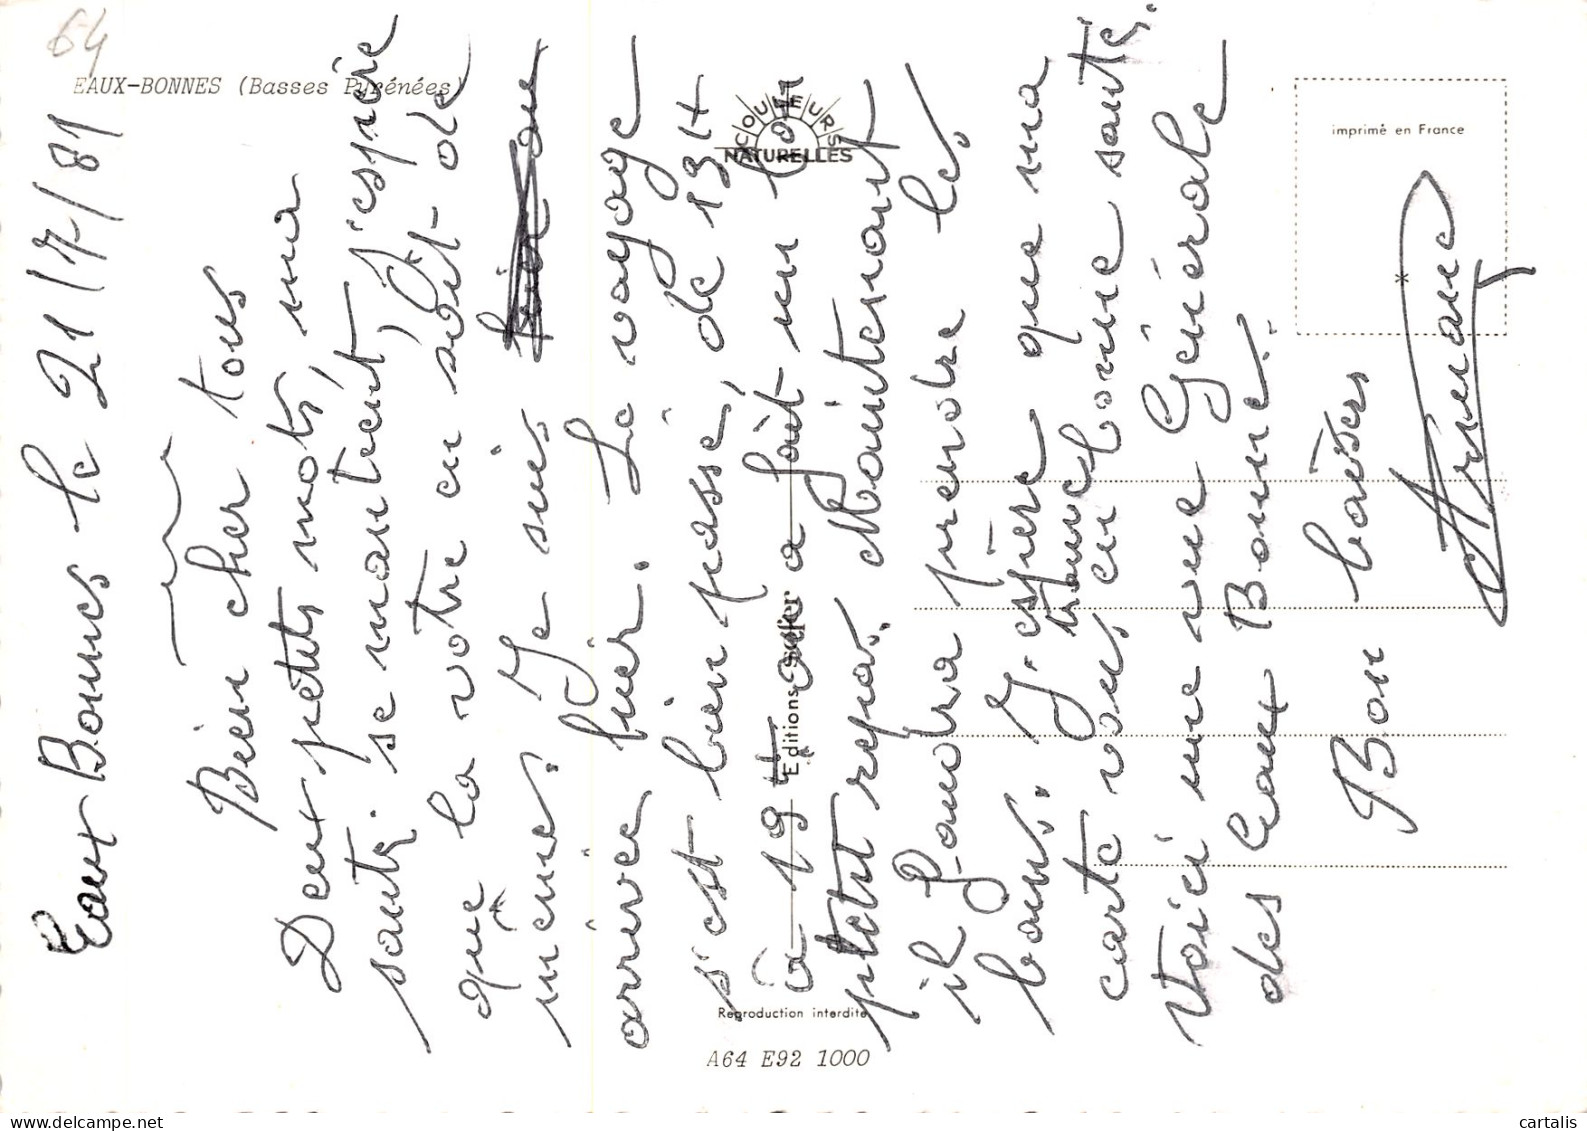 64
EAUX-BONNES (Basses Pyrénées)
COULEURS
NATURELLES
imprimé en France
Editions
Reproduction interdite
A64 E92 1000
Eaux Bonnes le 21/7/81
Bien cher tous
Deux petits mots, ma
santé se maintient, j'espère
que la votre en soit de
même. Je suis
arrivée hier. Le voyage
s'est bien passé, de 13H
à 19H on a fait un bon
petit repas. Maintenant
il faudra prendre les
bains. J'espère que ma
carte vous trouve en bonne santé.
Voici une vue Générale
des Eaux Bonne.
Bon baisers
Armang
cartalis